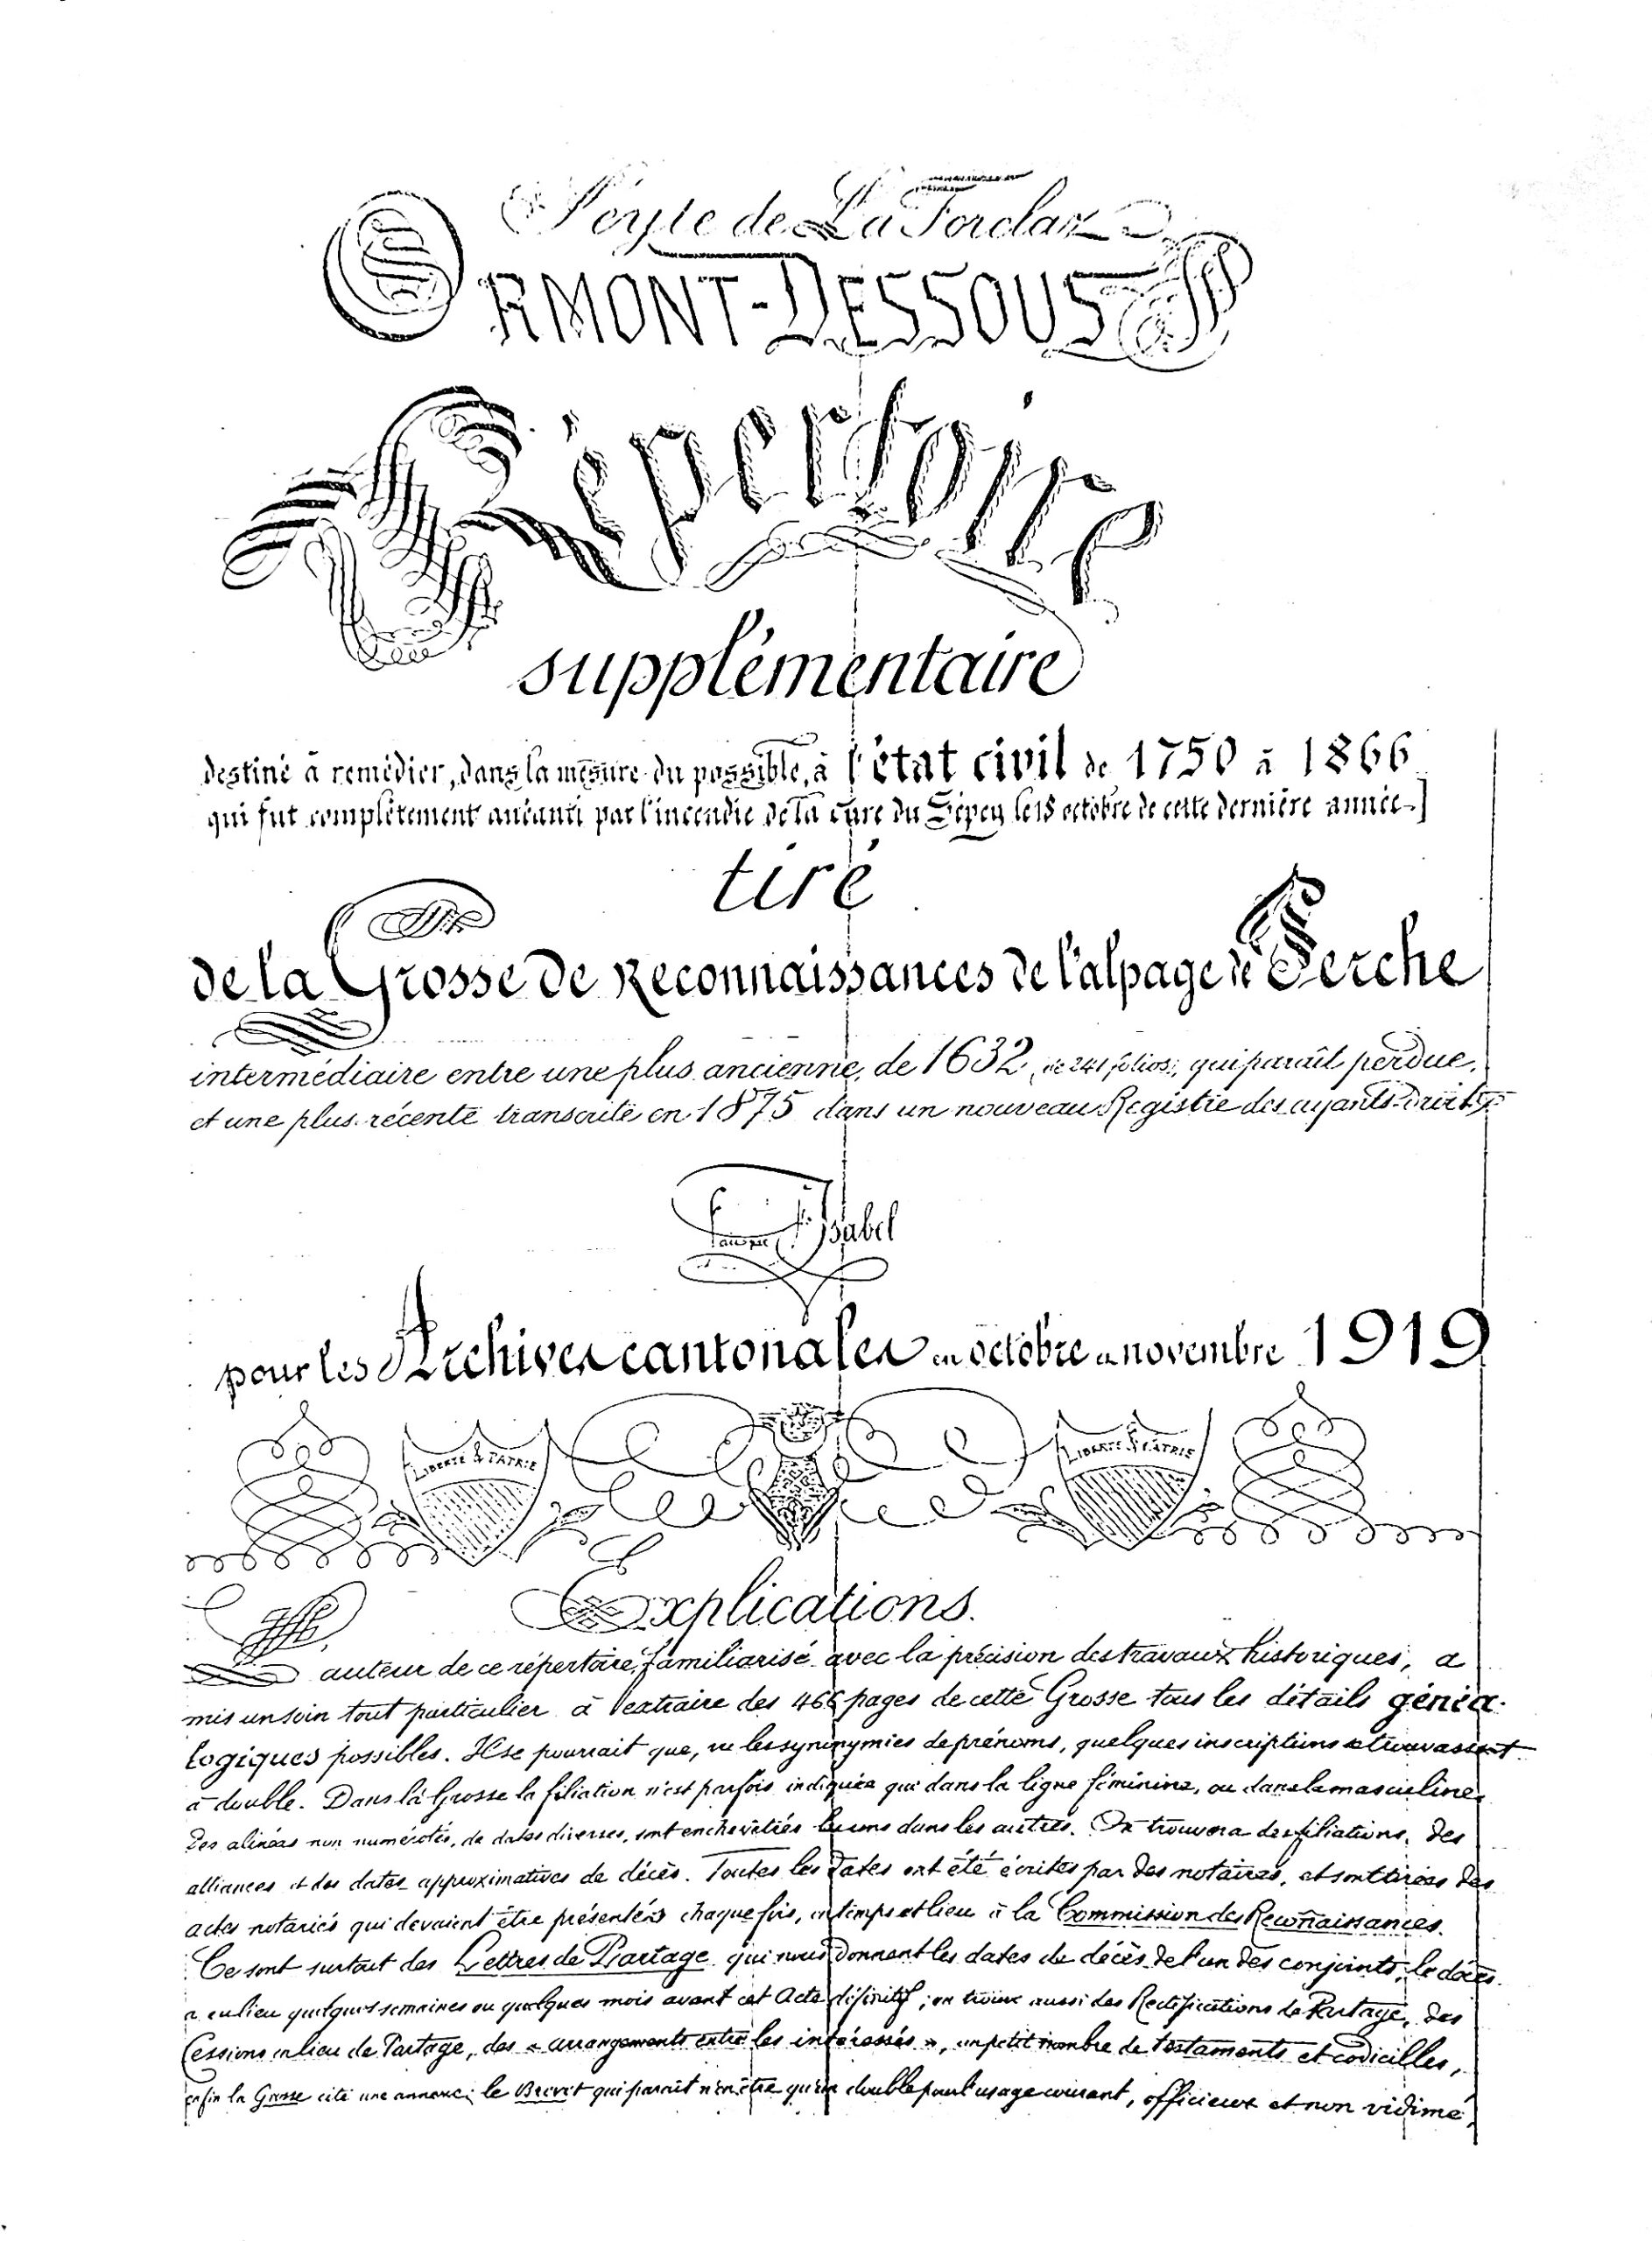 Seyte de La Forclaz
ORMONT-DESSOUS
Répertoire
supplémentaire
destiné à remédier, dans la mesure du possible, à l'état civil de 1750 à 1866
qui fut complètement anéanti par l'incendie de la cure du Sépey le 18 octobre de cette dernière année
tiré
de la Grosse de Reconnaissances de l'alpage de Perche
intermédiaire entre une plus ancienne, de 1632, de 241 folios, qui paraît perdue,
et une plus récente transcrite en 1875 dans un nouveau Registre des ayants-droit
F. Isabel
pour les Archives cantonales en octobre et novembre 1919
LIBERTÉ & PATRIE LIBERTÉ & PATRIE
Explications.
L'auteur de ce répertoire, familiarisé avec la précision des travaux historiques, a
mis un soin tout particulier à extraire des 466 pages de cette Grosse tous les détails généa-
logiques possibles. Il se pourrait que, vu les synonymies de prénoms, quelques inscriptions se trouvassent
à double. Dans la Grosse la filiation n'est parfois indiquée que dans la ligne féminine, ou dans la masculine.
Des alinéas non numérotés, de dates diverses, sont enchevêtrés les uns dans les autres. On trouvera des filiations, des
alliances et des dates approximatives de décès. Toutes les dates ont été écrites par des notaires, et sont tirées des
actes notariés qui devaient être présentés chaque fois, en temps et lieu à la Commission des Reconnaissances.
Ce sont surtout des Lettres de Partage qui nous donnent les dates de décès de l'un des conjoints; le décès
a eu lieu quelques semaines ou quelques mois avant cet Acte définitif; on trouve aussi des Rectifications de Partage, des
Cessions en lieu de Partage, des « arrangements entre les intéressés », un petit nombre de testaments et codicilles,
enfin la Grosse cite une annexe, le Brevet qui paraît n'en être qu'un double pour l'usage courant, officieux et non vidimé,